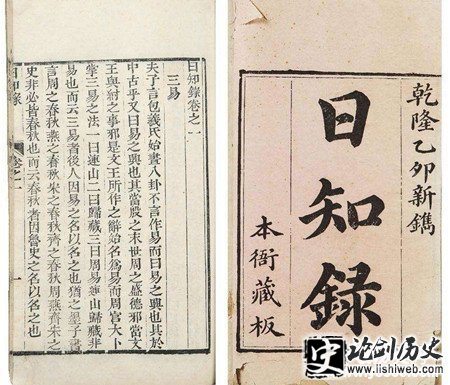 乾隆乙卯新鐫
日知錄
本衙藏板
日知錄卷之一
三易
夫子言包羲氏始畫八卦不言作易而曰易之興也其於
中古乎又曰易之興也其當殷之末世周之盛德邪當文
王與紂之事邪是文王所作之辭始名爲易而周官大卜
掌三易之法一曰連山二曰歸藏三曰周易連山歸藏非
易也而云三易者後人因易之名以名之也猶之墨子書
言周之春秋燕之春秋宋之春秋齊之春秋周燕齊宋之
史非必皆春秋也而云春秋者因魯史之名以名之也
日知錄 卷之一 一
史 论剑历史
www.lishiweb.com